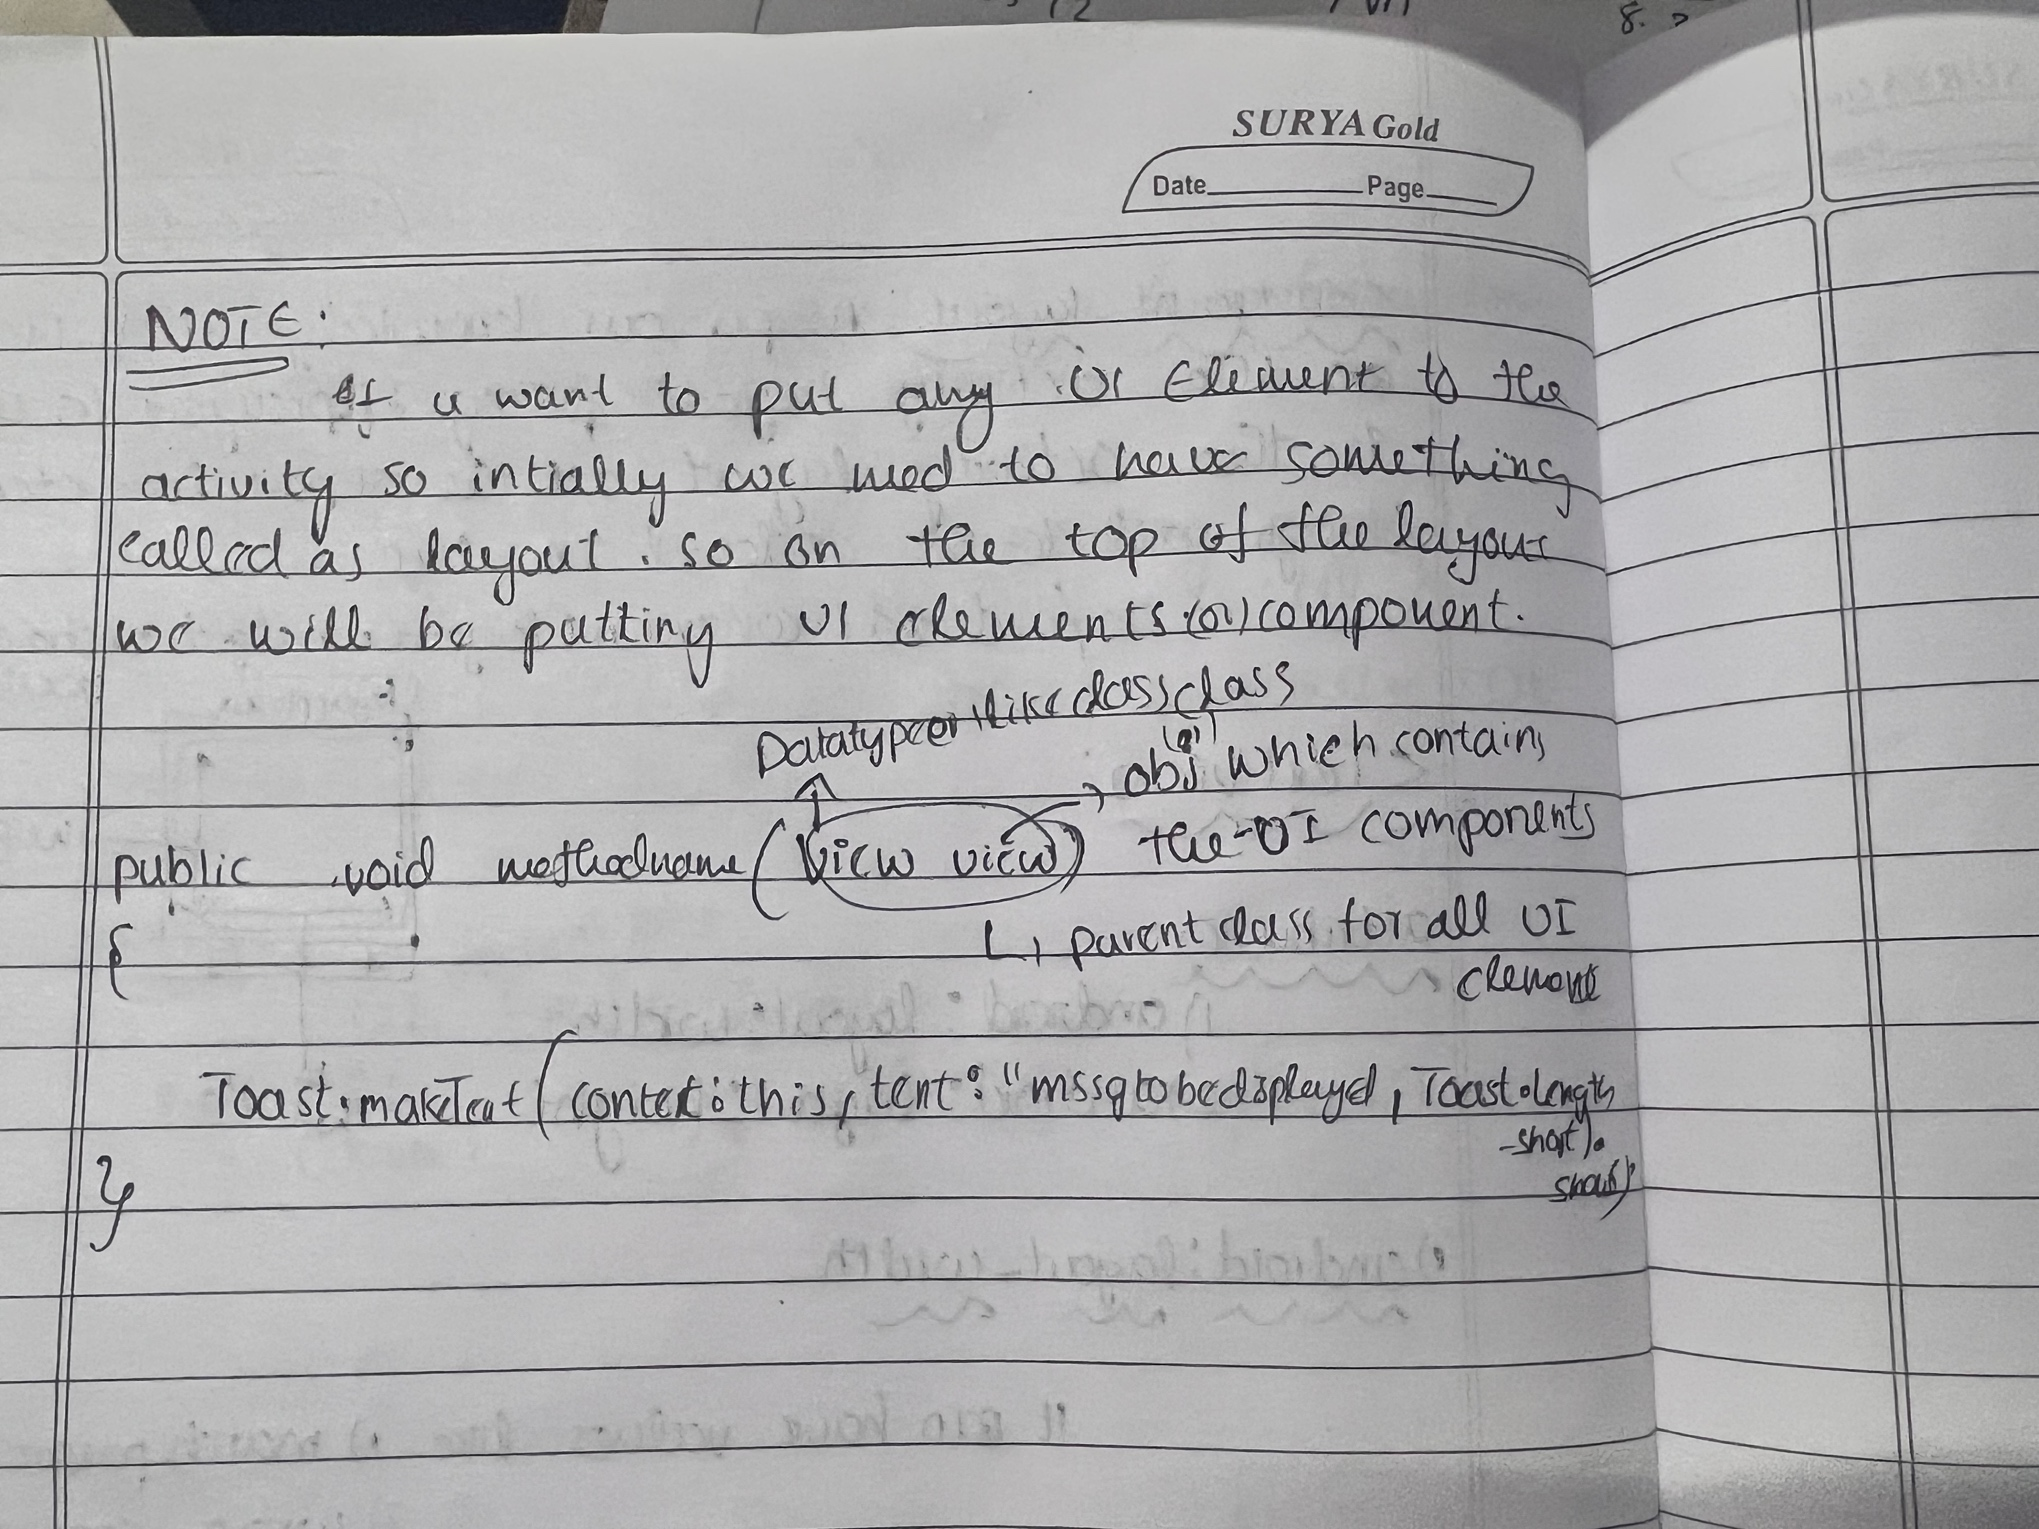 SURYA Gold
Date Page
NOTE:
If u want to put any UI Element to the
activity so intially we need to have something
called as layout. so on the top of the layout
we will be putting UI elements (or) component.
Datatype or like class class
(or)
obj which contains
the UI components
public void methodname (View view)
{
parent class for all UI
element
Toast.makeText (context: this, text: "mssg to be displayed, Toast.Length
_short).
show()
}